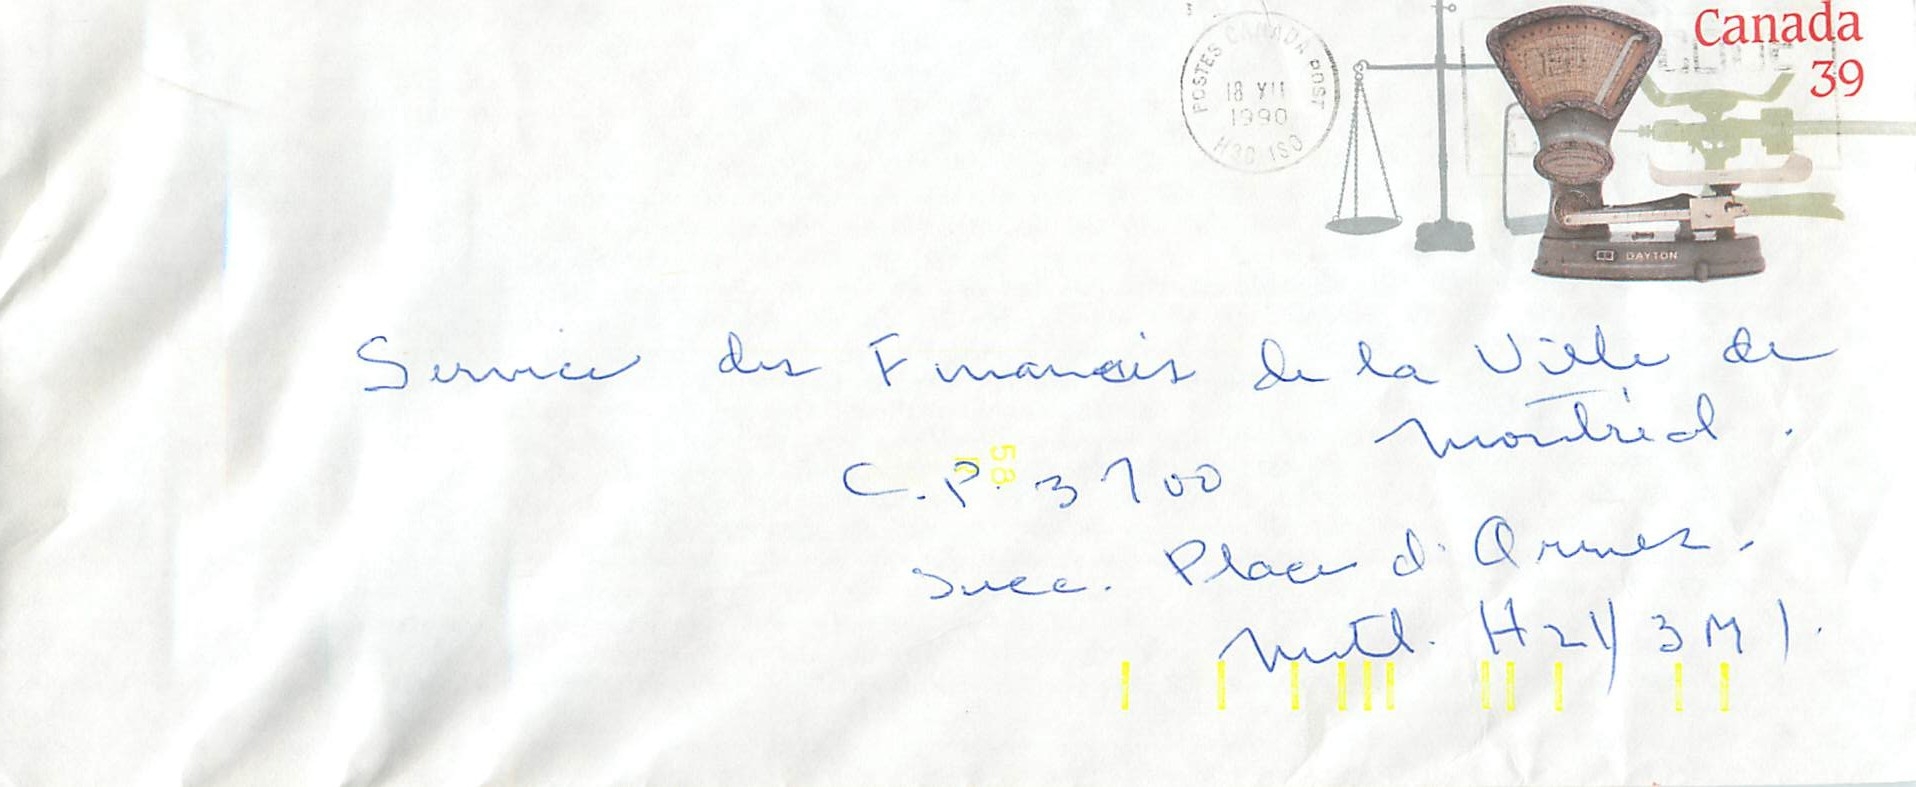 Canada
39
POSTES CANADA POST
18 XII
1990
DAYTON
Service des Finances de la Ville de
Montréal.
58
C.P. 3700
Succ. Place d'Armes.
Mtl. H2Y 3M1.